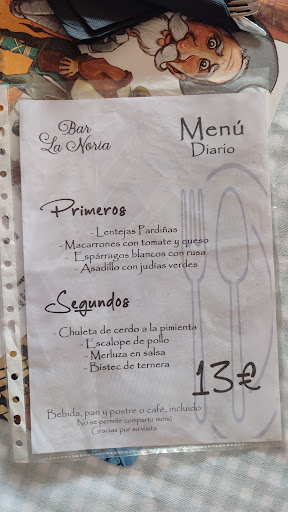 Bar
La Noria
Menú
Diario
Primeros
- Lentejas Pardiñas
- Macarrones con tomate y queso
- Espárragos blancos con rusa
- Asadillo con judías verdes
Segundos
- Chuleta de cerdo a la pimienta
- Escalope de pollo
- Merluza en salsa
- Bistec de ternera
13€
Bebida, pan y postre o café, incluido
No se permite compartir menú
Gracias por su visita